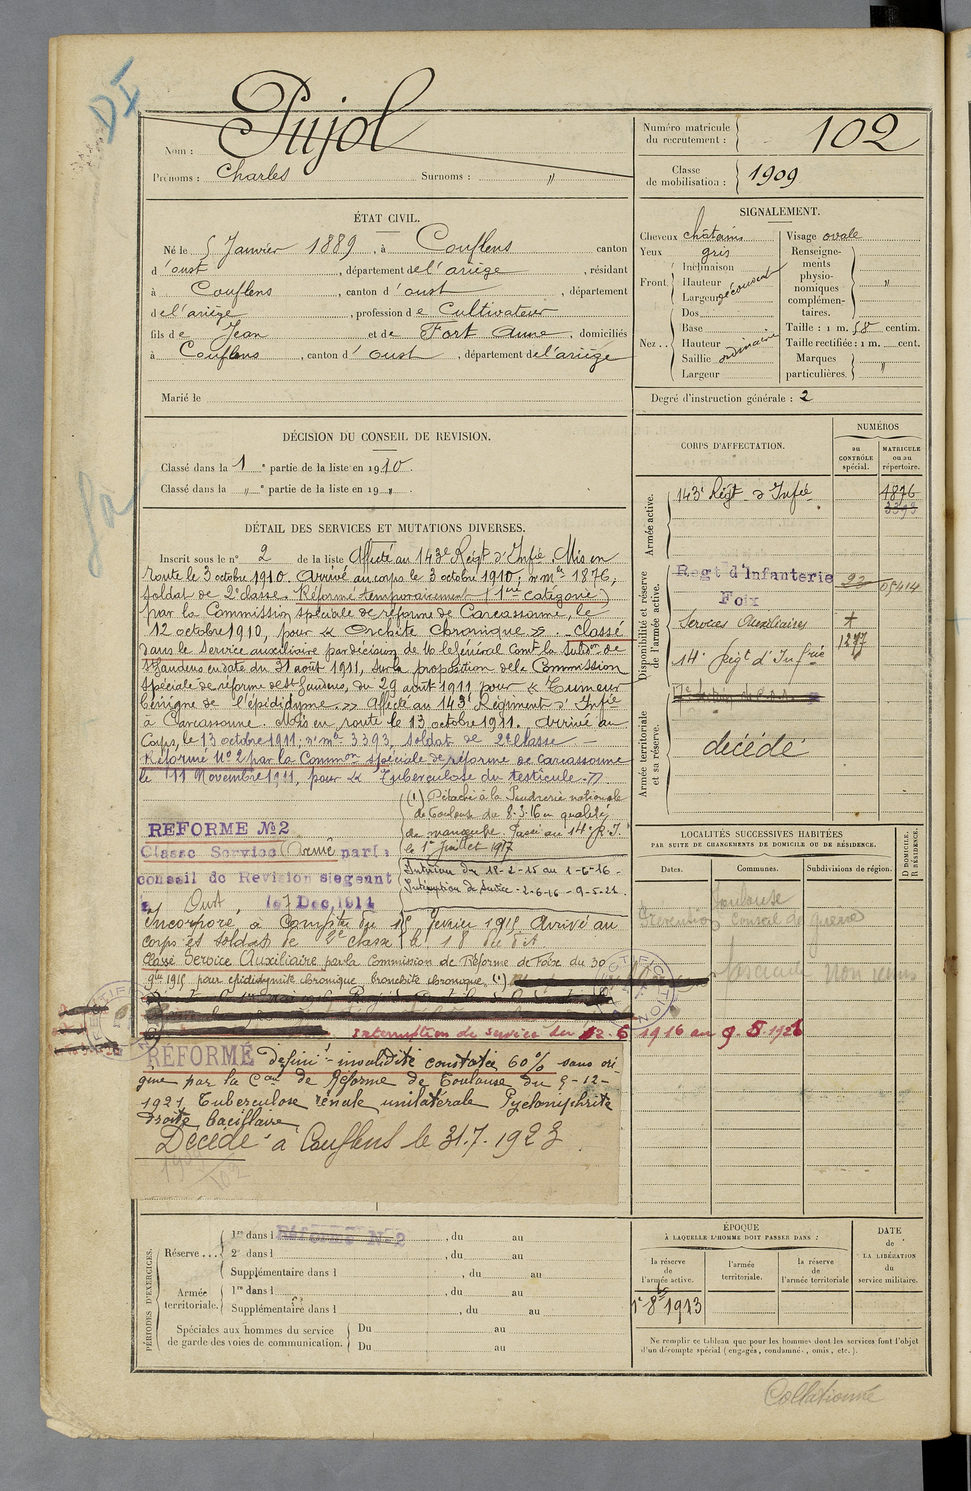 DI
Nom : Pujol
Prénoms : Charles Surnoms : "
Numéro matricule du recrutement : 102
Classe de mobilisation : 1909
ÉTAT CIVIL.
Né le 5 Janvier 1889, à Couflens canton
d'oust, département de l'ariège, résidant
à Couflens, canton d'oust, département
de l'ariège, profession de Cultivateur
fils de Jean et de Fort Anne, domiciliés
à Couflens, canton d'oust, département de l'ariège
Marié le
SIGNALEMENT.
Cheveux chatains
Yeux gris
Front. Inclinaison
Hauteur
Largeur
Nez .. Dos
Base
Hauteur
Saillie ordinaire
Largeur
Visage ovale
Renseignements physionomiques complémentaires. "
Taille : 1 m. 58 centim.
Taille rectifiée : 1 m. cent.
Marques particulières. "
Degré d'instruction générale : 2
DÉCISION DU CONSEIL DE REVISION.
Classé dans la 1e partie de la liste en 1910.
Classé dans la " e partie de la liste en 19 ".
CORPS D'AFFECTATION.
NUMÉROS
au CONTRÔLE spécial.
MATRICULE ou au répertoire.
Armée active.
143e Régt d'Infie
1876
3393
Disponibilité et réserve de l'armée active.
Regt d'Infanterie
Foix
05414
Services Auxiliaires
14e Regt d'Infrie
1277
Armée territoriale et sa réserve.
décédé
DÉTAIL DES SERVICES ET MUTATIONS DIVERSES.
Inscrit sous le n° 2 de la liste Affecté au 143e Regt d'Infie Mis en
route le 3 octobre 1910. Arrivé au corps le 3 octobre 1910, n° mle 1876,
soldat de 2e classe. Réformé temporairement (1ère catégorie)
par la Commission spéciale de réforme de Carcassonne, le
12 octobre 1910, pour « Orchite chronique ». - Classé
dans le service auxiliaire par décision de M. le Général Comt la Subdon de
St Gaudens en date du 31 août 1911, sur la proposition de la Commission
spéciale de réforme de St Gaudens, du 29 août 1911 pour « Tumeur
bénigne de l'épididyme. » Affecté au 143e Régiment d'Infie
à Carcassonne. Mis en route le 13 octobre 1911. Arrivé au
Corps, le 13 octobre 1911. n° mle 3393, soldat de 2e classe -
Réformé N° 2 par la Common spéciale de réforme de carcassonne
le 11 Novembre 1911, pour « Tuberculose du testicule. »
(1) Détaché à la Poudrerie nationale
de Toulouse du 8-3-16 en qualité
de manœuvre. Passé au 14e R.I.
le 1er Juillet 1917
Intérieur du 18-2-15 au 1-6-16 -
Interruption de Service - 2-6-16 - 9-5-21.
REFORME No 2
Classe Service Armé par le
conseil de Revision siégeant
à Oust le 7 Dec. 1914
Incorporé, à Compter du 15 février 1915 Arrivé au
corps et soldat de 2e classe le 18 du dit
Classé Service Auxiliaire par la Commission de Réforme de Foix du 30
9bre 1915 pour épididymite chronique, bronchite chronique. (1)
Interruption de service du 2.6 1916 au 9.5.1921
RÉFORMÉ définit - invalidité constatée 60% sans ori-
gine par la Con de Réforme de Toulouse du 5-12-
1921 Tuberculose rénale unilatérale Pyelonephrite
droite bacillaire
Décédé à Couflens le 31.7.1923.
LOCALITÉS SUCCESSIVES HABITÉES
PAR SUITE DE CHANGEMENTS DE DOMICILE OU DE RÉSIDENCE.
Dates. Communes. Subdivisions de région. D DOMICILE. R RÉSIDENCE.
Toulouse
Prévention Conseil de guerre
fascicule non remis
PÉRIODES D'EXERCICES.
Réserve ... 1re dans l Réformé No 2, du au
2e dans l, du au
Supplémentaire dans l, du au
Armée territoriale. 1re dans l, du au
Supplémentaire dans l, du au
Spéciales aux hommes du service de garde des voies de communication. Du au
Du au
ÉPOQUE
À LAQUELLE L'HOMME DOIT PASSER DANS :
la réserve de l'armée active.
l'armée territoriale.
la réserve de l'armée territoriale
DATE de LA LIBÉRATION du service militaire.
1er 8bre 1913
Ne remplir ce tableau que pour les hommes dont les services font l'objet
d'un décompte spécial (engagés, condamnés, omis, etc.).
Collationné